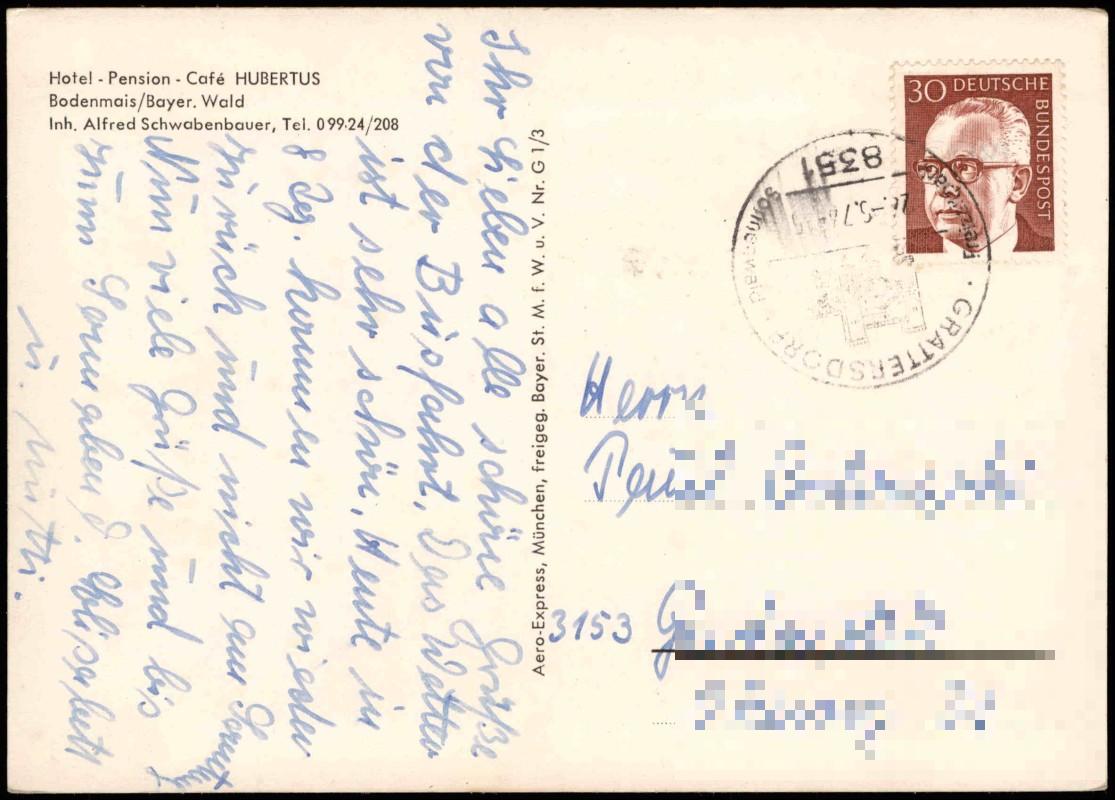 Hotel - Pension - Café HUBERTUS
Bodenmais/Bayer. Wald
Inh. Alfred Schwabenbauer, Tel. 0 99 24/208
Ihr Lieben alle schöne Grüße
von der Busfahrt. Das Wetter
ist sehr schön, Heute in
8 Tag. kommen wir wieder
zurück und nicht am Sonnt
Nun viele Grüße und bis
zum Sonnabend. Elisabeth
u. Mutti.
Aero-Express, München, freigeg. Bayer. St. M. f. W. u. V. Nr. G 1/3
30 DEUTSCHE
BUNDESPOST
8351
GRATTERSDORF
Herrn
Paul
3153